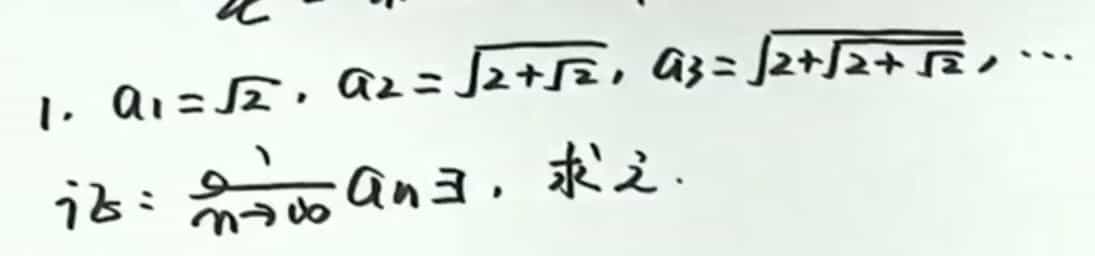 1. a₁=√2, a₂=√(2+√2), a₃=√(2+√(2+√2)), …
证: lim n→∞ aₙ∃, 求之.